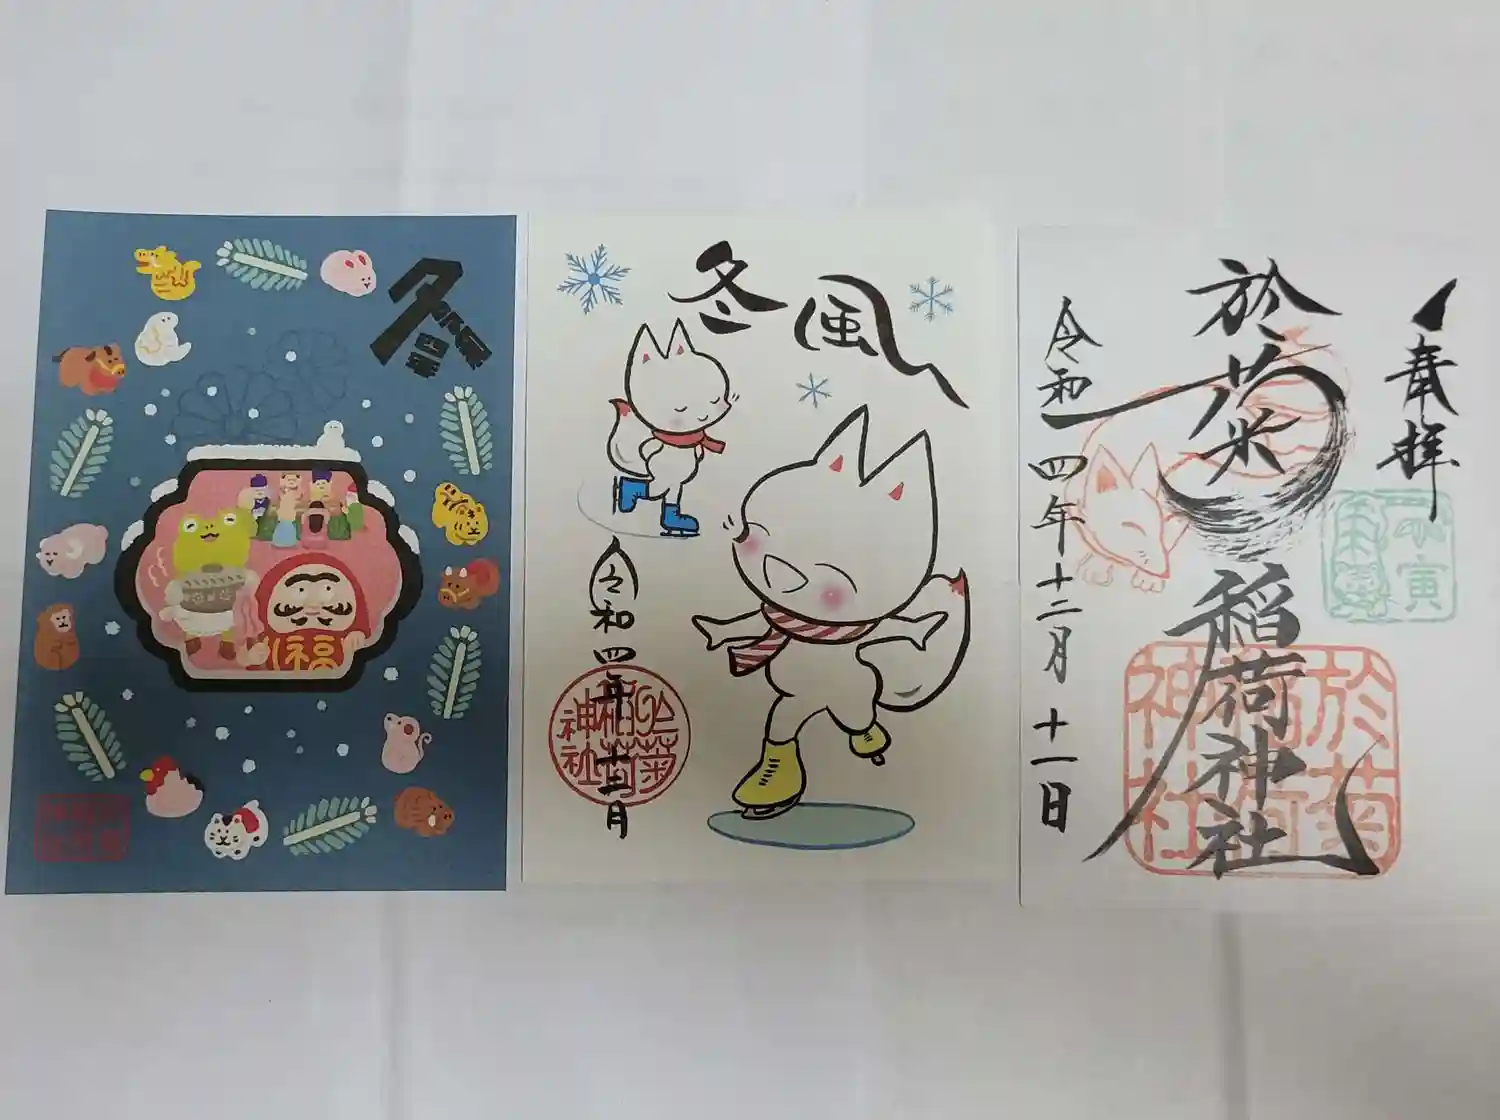 冬
福
冬風
令和四年十二月
於菊稲荷神社
奉拝
於菊稲荷神社
令和四年十二月十一日
於菊稲荷神社
寅